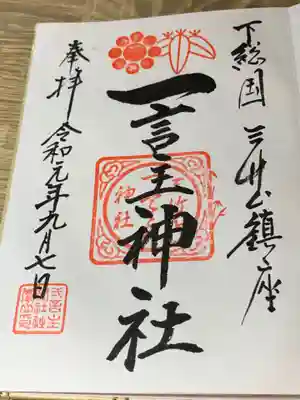 下総国 三竹山鎮座
一言主神社
奉拝 令和元年九月七日
神社